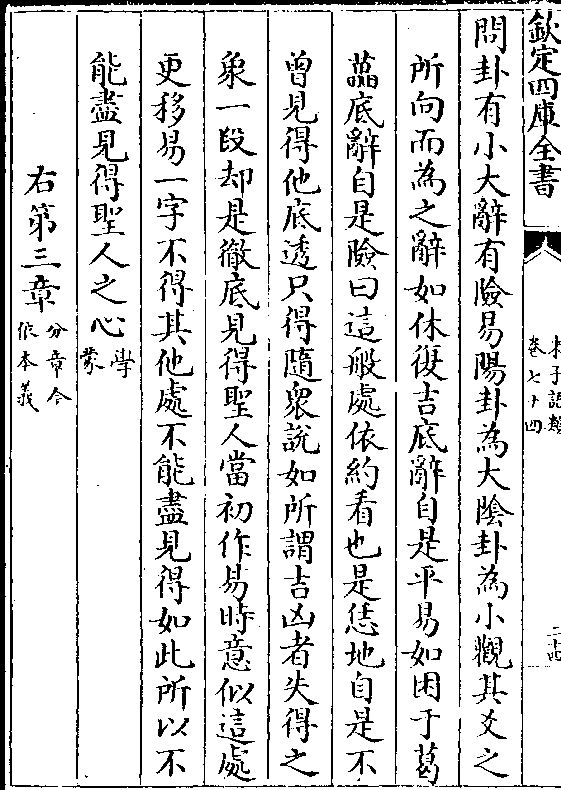 欽定四庫全書
朱子語類
卷七十四
二十四
問卦有小大辭有險易陽卦為大陰卦為小觀其爻之
所向而為之辭如休復吉底辭自是平易如困于葛
藟底辭自是險曰這般處依約看也是恁地自是不
曾見得他底透只得隨衆說如所謂吉凶者失得之
象一段却是徹底見得聖人當初作易時意似這處
更移易一字不得其他處不能盡見得如此所以不
能盡見得聖人之心學蒙
右第三章分章今依本義